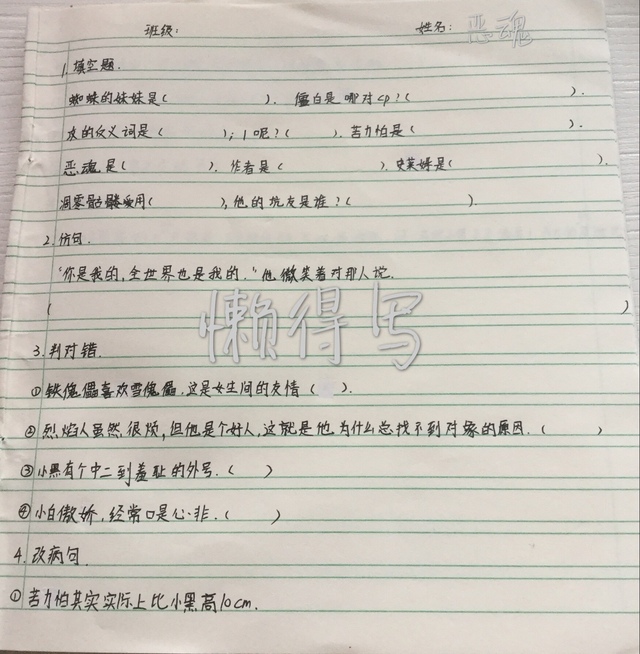 班级: 姓名: 恶魂
1. 填空题.
蜘蛛的妹妹是( ). 僵白是哪对cp?( ).
灰的反义词是( ); 1呢?( ). 苦力怕是( ).
恶魂是( ). 作者是( ). 史莱姆是( ).
凋零骷髅爱用( ), 他的坑友是谁?( ).
2. 仿句.
“你是我的, 全世界也是我的.”他微笑着对那人说.
( )
懒得写
3. 判对错.
①铁傀儡喜欢雪傀儡, 这是女生间的友情( ).
②烈焰人虽然很烦, 但他是个好人, 这就是他为什么总找不到对象的原因.( )
③小黑有个中二到羞耻的外号.( )
④小白傲娇, 经常口是心非.( )
4. 改病句.
①苦力怕其实实际上比小黑高10cm.